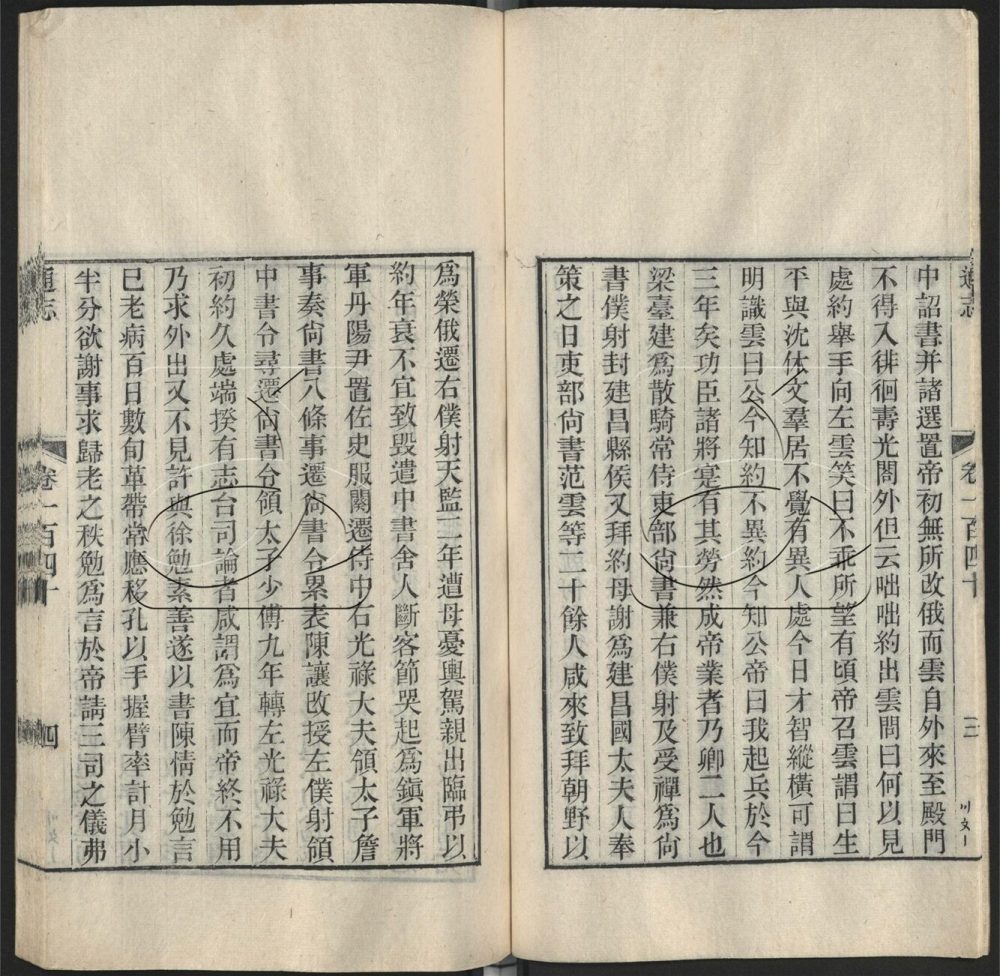 通志
卷一百四十
三
中詔書并諸選置帝初無所改俄而雲自外來至殿門
不得入徘徊壽光閤外但云咄咄約出雲問曰何以見
處約舉手向左雲笑曰不乖所望有頃帝召雲謂曰生
平與沈休文羣居不覺有異人處今日才智縱橫可謂
明識雲曰公今知約不異約今知公帝曰我起兵於今
三年矣功臣諸將寔有其勞然成帝業者乃卿二人也
梁臺建爲散騎常侍吏部尚書兼右僕射及受禪爲尚
書僕射封建昌縣侯又拜約母謝爲建昌國太夫人奉
策之日吏部尚書范雲等二十餘人咸來致拜朝野以
爲榮俄遷右僕射天監二年遭母憂輿駕親出臨弔以
約年衰不宜致毀遣中書舍人斷客節哭起爲鎭軍將
軍丹陽尹置佐史服闋遷侍中右光祿大夫領太子詹
事奏尚書八條事遷尚書令累表陳讓改授左僕射領
中書令尋遷尚書令領太子少傅九年轉左光祿大夫
初約久處端揆有志台司論者咸謂爲宜而帝終不用
乃求外出又不見許與徐勉素善遂以書陳情於勉言
巳老病百日數旬革帶常應移孔以手握臂率計月小
半分欲謝事求歸老之秩勉爲言於帝請三司之儀弗
通志
卷一百四十
四